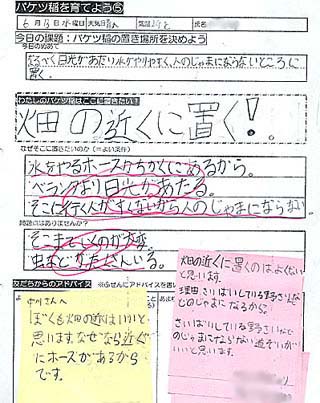 バケツ稲を育てよう⑤
6月13日水曜日 天気 気温 氏名
今日の課題：バケツ稲の置き場所を決めよう
今日のめあて
なるべく日光があたり水がやりやすく、人のじゃまにならないところに
置く。
わたしのバケツ稲はここに置きたい！
畑の近くに置く!
なぜそこに置きたいのか（＝よい条件）
水をやるホースがちかくにあるから。
ベランダより日光があたる。
そこに行く人がすくないから人のじゃまにならない。
問題点はありませんか？
そこまでいくのが大変。
虫がたくさんいる。
友だちからのアドバイス ※ふせんにアドバイスを書
中川さんへ
ぼくも畑の近はいいと
思います。なぜなら近く
にホースがあるから
です。
畑の近くに置くのはよくない
と思います。
理由、さいばいしている野さいなど
のじゃまになるから。
さいばいしている野さいなど
のじゃまにならない
いいと思います。